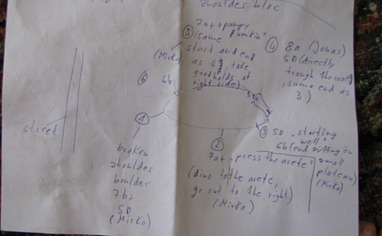 shoulder bloc
③ 7a+ ponury
(same "Bunkin"
start and end
as 4, take
goodholds at
right side)
(Mirko)
④ 8a (Jonas)
SD (directly
trough the roof,
same end as
3.)
6b
street
①
broken
shoulder
boulder
7b,
SD
(Mirko)
②
7a+, press the arete,
(dino to the arete,
go out to the right)
(Mirko)
SD, starting
well,
6b (end sitting on
small
plateau)
(Mirko)